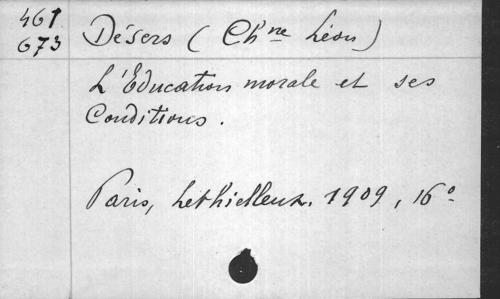 461
673
Désers (Chne Léon)
L'Éducation morale et ses
Conditions.
Paris, Lethielleux. 1909, 16°